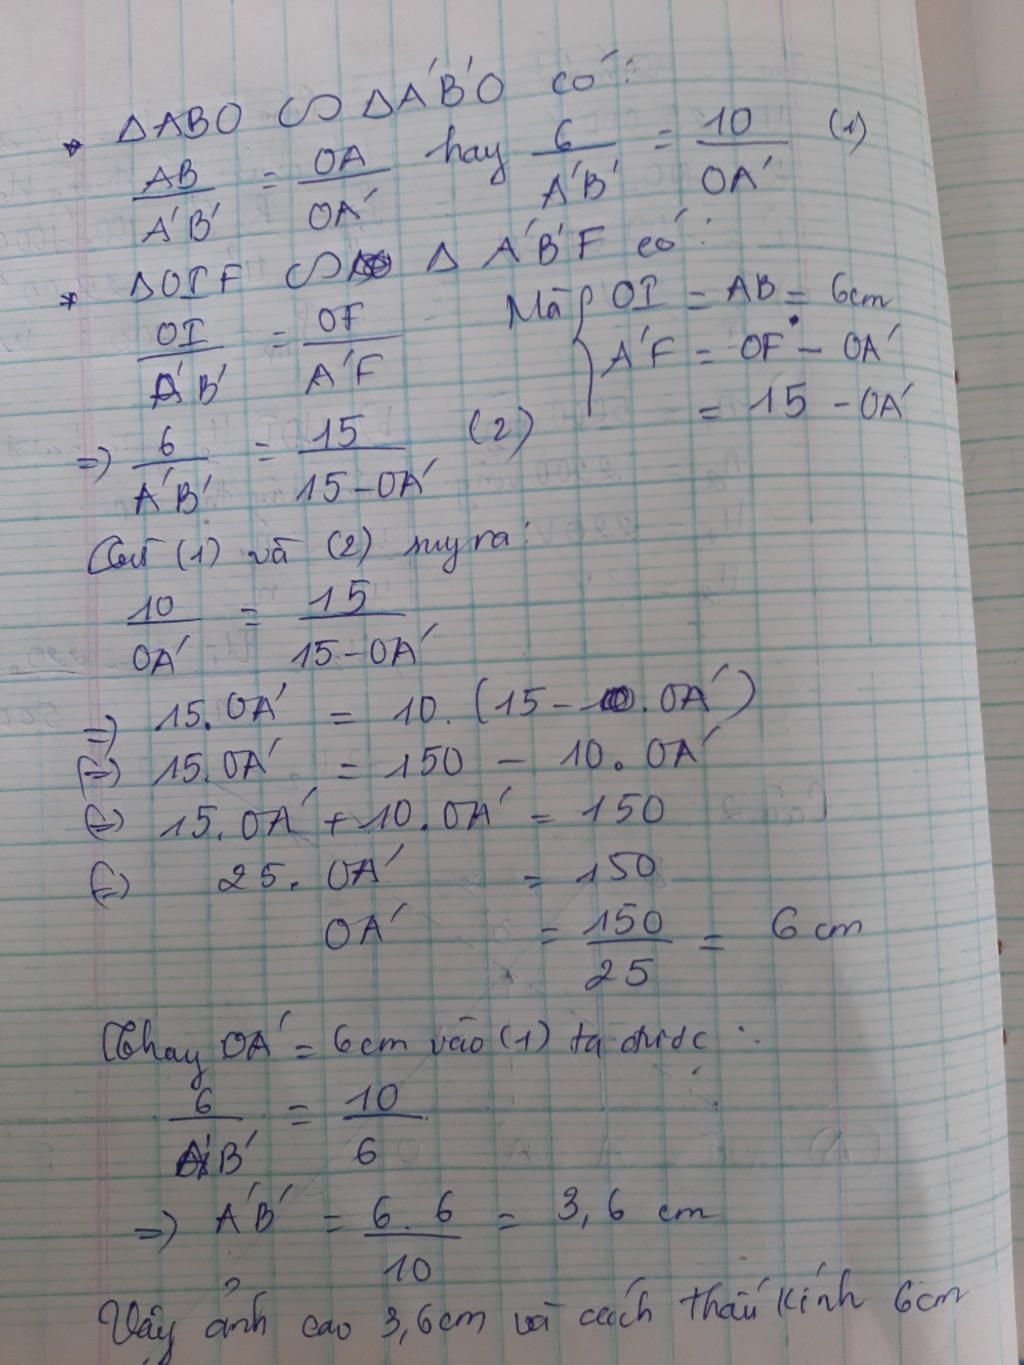 * ΔABO ∽ ΔA'B'O có:
AB/A'B' = OA/OA' hay 6/A'B' = 10/OA' (1)
* ΔOIF ∽ Δ A'B'F có:
OI/A'B' = OF/A'F Mà { OI = AB = 6cm
A'F = OF - OA'
= 15 - OA'
=> 6/A'B' = 15/15-OA' (2)
Từ (1) và (2) suy ra:
10/OA' = 15/15-OA'
=> 15.OA' = 10.(15-.OA')
(=) 15.OA' = 150 - 10.OA'
(=) 15.OA' + 10.OA' = 150
(=) 25.OA' = 150
OA' = 150/25 = 6 cm
Thay OA' = 6cm vào (1) ta được:
6/A'B' = 10/6
=> A'B' = 6.6/10 = 3,6 cm
Vậy ảnh cao 3,6cm và cách thấu kính 6cm